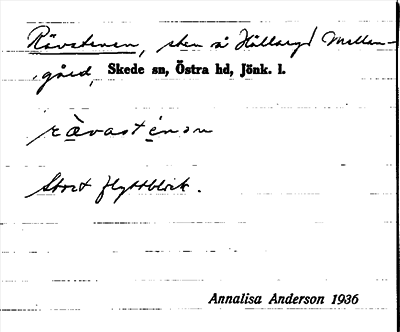 Rävstenen, sten å Hällaryd Mellan-
gård, Skede sn, Östra hd, Jönk. l.
ràvasténən
Stort flyttblock.
Annalisa Anderson 1936